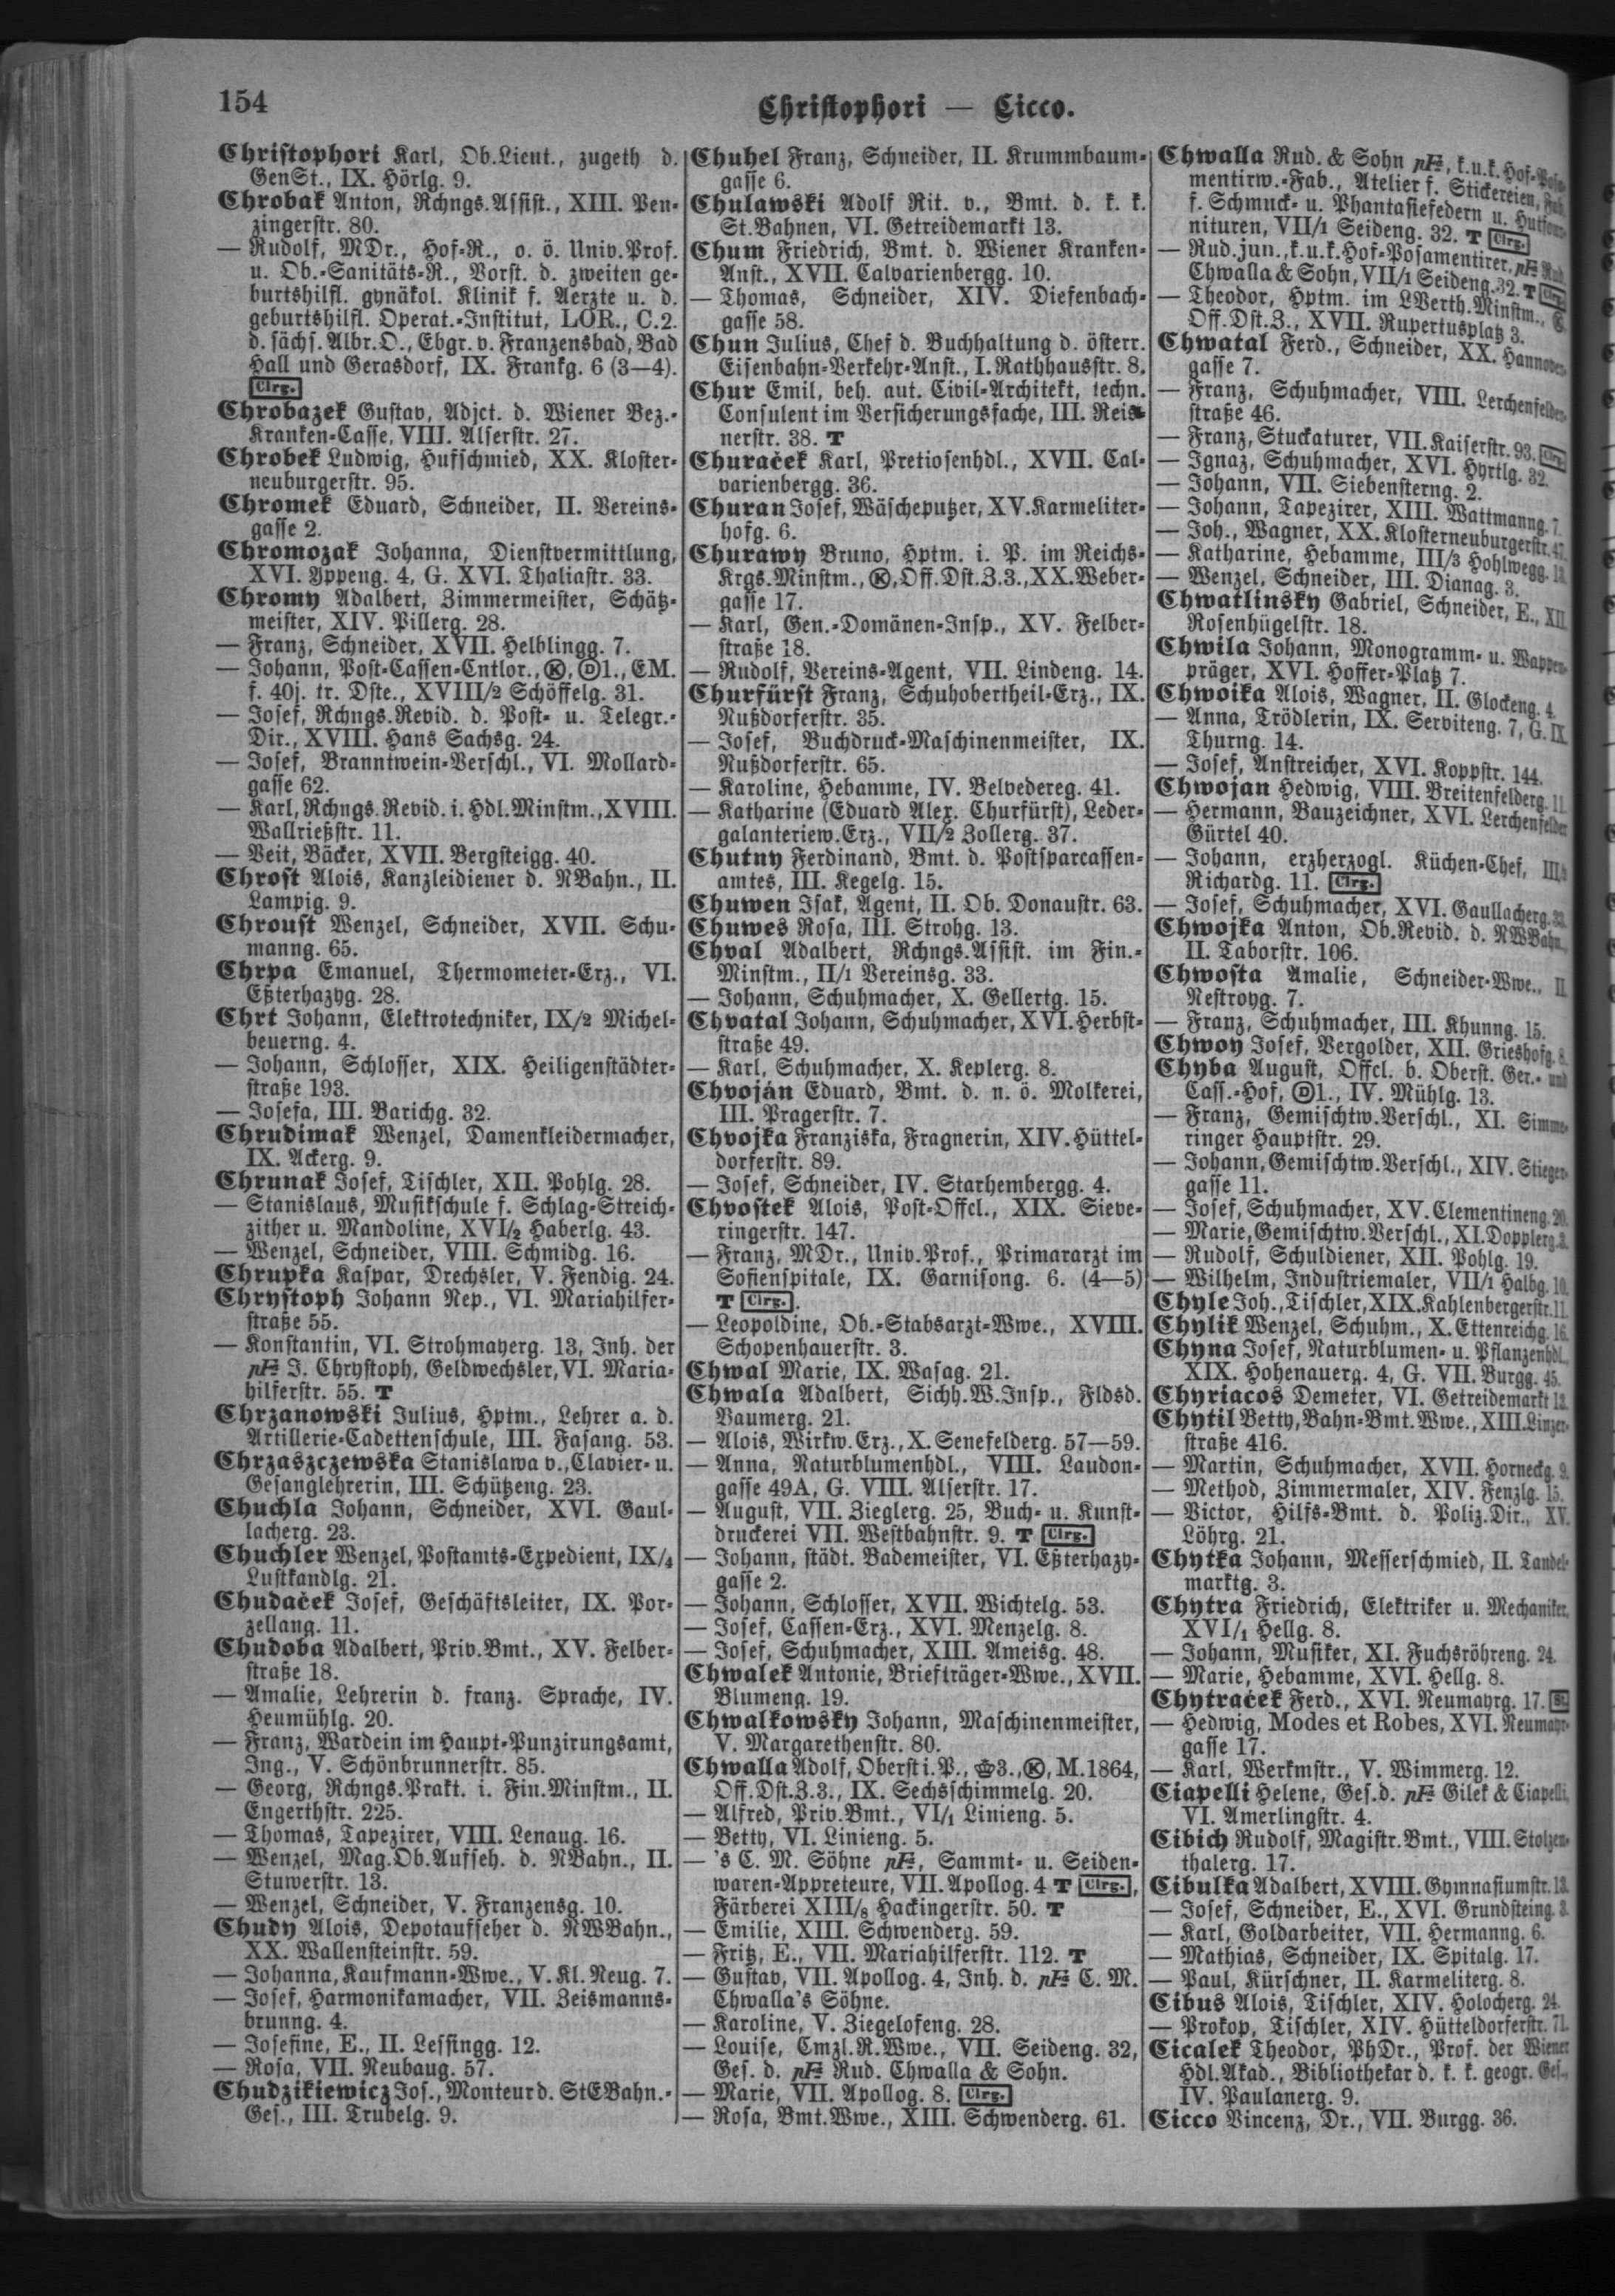 154
Christophori — Cicco.
Christophori Karl, Ob.Lieut., zugeth d.
GenSt., IX. Hörlg. 9.
Chrobak Anton, Rchngs.Assist., XIII. Pen-
zingerstr. 80.
— Rudolf, MDr., Hof-R., o. ö. Univ.Prof.
u. Ob.-Sanitäts-R., Vorst. d. zweiten ge-
burtshilfl. gynäkol. Klinik f. Aerzte u. d.
geburtshilfl. Operat.-Institut, LOR., C.2.
d. sächs. Albr.O., Ebgr. v. Franzensbad, Bad
Hall und Gerasdorf, IX. Frankg. 6 (3—4).
Clrg.
Chrobazek Gustav, Adjct. d. Wiener Bez.-
Kranken-Casse, VIII. Alserstr. 27.
Chrobek Ludwig, Hufschmied, XX. Kloster-
neuburgerstr. 95.
Chromek Eduard, Schneider, II. Vereins-
gasse 2.
Chromozak Johanna, Dienstvermittlung,
XVI. Yppeng. 4, G. XVI. Thaliastr. 33.
Chromy Adalbert, Zimmermeister, Schätz-
meister, XIV. Pillerg. 28.
— Franz, Schneider, XVII. Helblingg. 7.
— Johann, Post-Cassen-Cntlor., Ⓚ, Ⓓ1., EM.
f. 40j. tr. Dste., XVIII/2 Schöffelg. 31.
— Josef, Rchngs.Revid. d. Post- u. Telegr.-
Dir., XVIII. Hans Sachsg. 24.
— Josef, Branntwein-Verschl., VI. Mollard-
gasse 62.
— Karl, Rchngs.Revid. i. Hdl.Minstm., XVIII.
Wallrießstr. 11.
— Veit, Bäcker, XVII. Bergsteigg. 40.
Chrost Alois, Kanzleidiener d. NBahn., II.
Lampig. 9.
Chroust Wenzel, Schneider, XVII. Schu-
manng. 65.
Chrpa Emanuel, Thermometer-Erz., VI.
Eßterhazyg. 28.
Chrt Johann, Elektrotechniker, IX/2 Michel-
beuerng. 4.
— Johann, Schlosser, XIX. Heiligenstädter-
straße 193.
— Josefa, III. Barichg. 32.
Chrudimak Wenzel, Damenkleidermacher,
IX. Ackerg. 9.
Chrunak Josef, Tischler, XII. Pohlg. 28.
— Stanislaus, Musikschule f. Schlag-Streich-
zither u. Mandoline, XVI/2 Haberlg. 43.
— Wenzel, Schneider, VIII. Schmidg. 16.
Chrupka Kaspar, Drechsler, V. Fendig. 24.
Chrystoph Johann Nep., VI. Mariahilfer-
straße 55.
— Konstantin, VI. Strohmayerg. 13, Inh. der
pF= J. Chrystoph, Geldwechsler, VI. Maria-
hilferstr. 55. T
Chrzanowski Julius, Hptm., Lehrer a. d.
Artillerie-Cadettenschule, III. Fasang. 53.
Chrzaszczewska Stanislawa v., Clavier- u.
Gesanglehrerin, III. Schützeng. 23.
Chuchla Johann, Schneider, XVI. Gaul-
lacherg. 23.
Chuchler Wenzel, Postamts-Expedient, IX/4
Lustkandlg. 21.
Chudaček Josef, Geschäftsleiter, IX. Por-
zellang. 11.
Chudoba Adalbert, Priv.Bmt., XV. Felber-
straße 18.
— Amalie, Lehrerin d. franz. Sprache, IV.
Heumühlg. 20.
— Franz, Wardein im Haupt-Punzirungsamt,
Ing., V. Schönbrunnerstr. 85.
— Georg, Rchngs.Prakt. i. Fin.Minstm., II.
Engerthstr. 225.
— Thomas, Tapezirer, VIII. Lenaug. 16.
— Wenzel, Mag.Ob.Aufseh. d. NBahn., II.
Stuwerstr. 13.
— Wenzel, Schneider, V. Franzensg. 10.
Chudy Alois, Depotaufseher d. NWBahn.,
XX. Wallensteinstr. 59.
— Johanna, Kaufmann-Wwe., V. Kl. Neug. 7.
— Josef, Harmonikamacher, VII. Zeismanns-
brunng. 4.
— Josefine, E., II. Lessingg. 12.
— Rosa, VII. Neubaug. 57.
Chudzikiewicz Jos., Monteur d. StEBahn.-
Ges., III. Trubelg. 9.
Chuhel Franz, Schneider, II. Krummbaum-
gasse 6.
Chulawski Adolf Rit. v., Bmt. d. k. k.
St.Bahnen, VI. Getreidemarkt 13.
Chum Friedrich, Bmt. d. Wiener Kranken-
Anst., XVII. Calvarienbergg. 10.
— Thomas, Schneider, XIV. Diefenbach-
gasse 58.
Chun Julius, Chef d. Buchhaltung d. österr.
Eisenbahn-Verkehr-Anst., I. Rathhausstr. 8.
Chur Emil, beh. aut. Civil-Architekt, techn.
Consulent im Versicherungsfache, III. Reis-
nerstr. 38. T
Churaček Karl, Pretiosenhdl., XVII. Cal-
varienbergg. 36.
Churan Josef, Wäscheputzer, XV. Karmeliter-
hofg. 6.
Churawy Bruno, Hptm. i. P. im Reichs-
Krgs.Minstm., Ⓚ, Off.Dst.Z.3., XX. Weber-
gasse 17.
— Karl, Gen.-Domänen-Insp., XV. Felber-
straße 18.
— Rudolf, Vereins-Agent, VII. Lindeng. 14.
Churfürst Franz, Schuhobertheil-Erz., IX.
Nußdorferstr. 35.
— Josef, Buchdruck-Maschinenmeister, IX.
Nußdorferstr. 65.
— Karoline, Hebamme, IV. Belvedereg. 41.
— Katharine (Eduard Alex. Churfürst), Leder-
galanteriew.Erz., VII/2 Zollerg. 37.
Chutny Ferdinand, Bmt. d. Postsparcassen-
amtes, III. Kegelg. 15.
Chuwen Isak, Agent, II. Ob. Donaustr. 63.
Chuwes Rosa, III. Strohg. 13.
Chval Adalbert, Rchngs.Assist. im Fin.-
Minstm., II/1 Vereinsg. 33.
— Johann, Schuhmacher, X. Gellertg. 15.
Chvatal Johann, Schuhmacher, XVI. Herbst-
straße 49.
— Karl, Schuhmacher, X. Keplerg. 8.
Chvoján Eduard, Bmt. d. n. ö. Molkerei,
III. Pragerstr. 7.
Chvojka Franziska, Fragnerin, XIV. Hüttel-
dorferstr. 89.
— Josef, Schneider, IV. Starhembergg. 4.
Chvostek Alois, Post-Offcl., XIX. Sieve-
ringerstr. 147.
— Franz, MDr., Univ.Prof., Primararzt im
Sofienspitale, IX. Garnisong. 6. (4—5)
T Clrg.
— Leopoldine, Ob.-Stabsarzt-Wwe., XVIII.
Schopenhauerstr. 3.
Chwal Marie, IX. Wasag. 21.
Chwala Adalbert, Sichh.W.Insp., Fldsd.
Baumerg. 21.
— Alois, Wirkw.Erz., X. Senefelderg. 57—59.
— Anna, Naturblumenhdl., VIII. Laudon-
gasse 49A, G. VIII. Alserstr. 17.
— August, VII. Zieglerg. 25, Buch- u. Kunst-
druckerei VII. Westbahnstr. 9. T Clrg.
— Johann, städt. Bademeister, VI. Eßterhazy-
gasse 2.
— Johann, Schlosser, XVII. Wichtelg. 53.
— Josef, Cassen-Erz., XVI. Menzelg. 8.
— Josef, Schuhmacher, XIII. Ameisg. 48.
Chwalek Antonie, Briefträger-Wwe., XVII.
Blumeng. 19.
Chwalkowsky Johann, Maschinenmeister,
V. Margarethenstr. 80.
Chwalla Adolf, Oberst i. P., 3., Ⓚ, M.1864,
Off.Dst.Z.3., IX. Sechsschimmelg. 20.
— Alfred, Priv.Bmt., VI/1 Linieng. 5.
— Betty, VI. Linieng. 5.
— 's C. M. Söhne pF=, Sammt- u. Seiden-
waren-Appreteure, VII. Apollog. 4 T Clrg.,
Färberei XIII/8 Hackingerstr. 50. T
— Emilie, XIII. Schwenderg. 59.
— Fritz, E., VII. Mariahilferstr. 112. T
— Gustav, VII. Apollog. 4, Inh. d. pF= C. M.
Chwalla's Söhne.
— Karoline, V. Ziegelofeng. 28.
— Louise, Cmzl.R.Wwe., VII. Seideng. 32,
Ges. d. pF= Rud. Chwalla & Sohn.
— Marie, VII. Apollog. 8. Clrg.
— Rosa, Bmt.Wwe., XIII. Schwenderg. 61.
Chwalla Rud. & Sohn pF=, k.u.k. Hof-Posa-
mentirw.-Fab., Atelier f. Stickereien,
f. Schmuck- u. Phantasiefedern u.
nituren, VII/1 Seideng. 32. T Clrg.
— Rud. jun., k.u.k. Hof-Posamentirer, pF= Rud.
Chwalla & Sohn, VII/1 Seideng. 32. T Clrg.
— Theodor, Hptm. im LVerth.Minstm.,
Off.Dst.Z., XVII. Rupertusplatz 3.
Chwatal Ferd., Schneider, XX. Hannover-
gasse 7.
— Franz, Schuhmacher, VIII. Lerchenfelder-
straße 46.
— Franz, Stuckaturer, VII. Kaiserstr. 93. Clrg.
— Ignaz, Schuhmacher, XVI. Hyrtlg. 32.
— Johann, VII. Siebensterng. 2.
— Johann, Tapezirer, XIII. Wattmanng. 7.
— Joh., Wagner, XX. Klosterneuburgerstr. 47.
— Katharine, Hebamme, III/3 Hohlwegg.
— Wenzel, Schneider, III. Dianag. 3.
Chwatlinsky Gabriel, Schneider, E., XII.
Rosenhügelstr. 18.
Chwila Johann, Monogramm- u. Wappen-
präger, XVI. Hoffer-Platz 7.
Chwoika Alois, Wagner, II. Glockeng. 4.
— Anna, Trödlerin, IX. Serviteng. 7, G. IX.
Thurng. 14.
— Josef, Anstreicher, XVI. Koppstr. 144.
Chwojan Hedwig, VIII. Breitenfelderg. 11.
— Hermann, Bauzeichner, XVI. Lerchenfelder
Gürtel 40.
— Johann, erzherzogl. Küchen-Chef,
Richardg. 11. Clrg.
— Josef, Schuhmacher, XVI. Gaullacherg.
Chwojka Anton, Ob.Revid. d. NWBahn.,
II. Taborstr. 106.
Chwosta Amalie, Schneider-Wwe., II.
Nestroyg. 7.
— Franz, Schuhmacher, III. Khunng. 15.
Chwoy Josef, Vergolder, XII. Grieshofg. 8.
Chyba August, Offcl. b. Oberst. Ger.- und
Cass.-Hof, Ⓓ1., IV. Mühlg. 13.
— Franz, Gemischtw.Verschl., XI. Simme-
ringer Hauptstr. 29.
— Johann, Gemischtw.Verschl., XIV. Stieger-
gasse 11.
— Josef, Schuhmacher, XV. Clementineng. 20.
— Marie, Gemischtw.Verschl., XI. Dopplerg. 3.
— Rudolf, Schuldiener, XII. Pohlg. 19.
— Wilhelm, Industriemaler, VII/1 Halbg. 10.
Chyle Joh., Tischler, XIX. Kahlenbergerstr. 11.
Chylik Wenzel, Schuhm., X. Ettenreichg. 16.
Chyna Josef, Naturblumen- u. Pflanzenhdl.,
XIX. Hohenauerg. 4, G. VII. Burgg. 45.
Chyriacos Demeter, VI. Getreidemarkt 13.
Chytil Betty, Bahn-Bmt.Wwe., XIII. Linzer-
straße 416.
— Martin, Schuhmacher, XVII. Horneckg. 9.
— Method, Zimmermaler, XIV. Fenzlg. 15.
— Victor, Hilfs-Bmt. d. Poliz.Dir., XV.
Löhrg. 21.
Chytka Johann, Messerschmied, II. Tandel-
marktg. 3.
Chytra Friedrich, Elektriker u. Mechaniker,
XVI/1 Hellg. 8.
— Johann, Musiker, XI. Fuchsröhreng. 24.
— Marie, Hebamme, XVI. Hellg. 8.
Chytraček Ferd., XVI. Neumayrg. 17. St.
— Hedwig, Modes et Robes, XVI. Neumayr-
gasse 17.
— Karl, Werkmstr., V. Wimmerg. 12.
Ciapelli Helene, Ges. d. pF= Gilek & Ciapelli,
VI. Amerlingstr. 4.
Cibich Rudolf, Magistr.Bmt., VIII. Stolzen-
thalerg. 17.
Cibulka Adalbert, XVIII. Gymnasiumstr. 13.
— Josef, Schneider, E., XVI. Grundsteing. 3.
— Karl, Goldarbeiter, VII. Hermanng. 6.
— Mathias, Schneider, IX. Spitalg. 17.
— Paul, Kürschner, II. Karmeliterg. 8.
Cibus Alois, Tischler, XIV. Holocherg. 24.
— Prokop, Tischler, XIV. Hütteldorferstr. 71.
Cicalek Theodor, PhDr., Prof. der Wiener
Hdl.Akad., Bibliothekar d. k. k. geogr. Ges.,
IV. Paulanerg. 9.
Cicco Vincenz, Dr., VII. Burgg. 36.